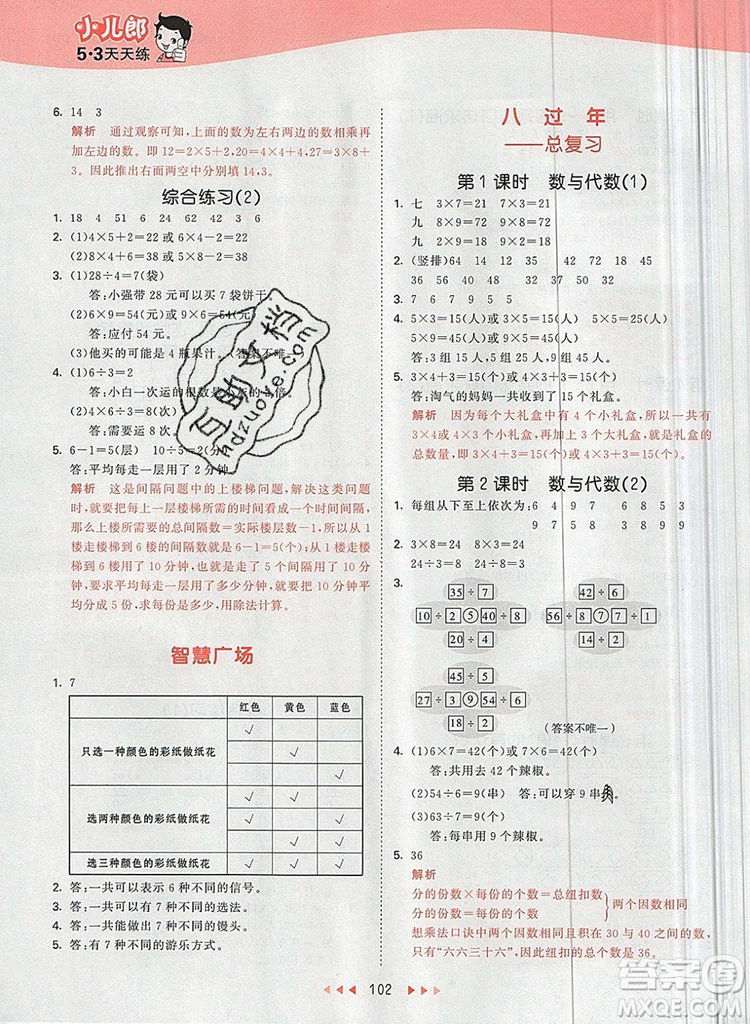 小儿郎
5·3天天练
6. 14 3
解析 通过观察可知，上面的数为左右两边的数相乘再
加左边的数。即 12=2×5+2，20=4×4+4，27=3×8+
3。因此推出右面两空中分别填 14,3。
综合练习(2)
1. 18 4 51 6 24 62 42 3 6
2. (1)4×5+2=22 或 6×4-2=22
(2)6×6+2=38 或 5×8-2=38
3. (1)28÷4=7(袋)
答:小强带 28 元可以买 7 袋饼干。
(2)6×9=54(元)或 9×6=54(元)
答:应付 54 元。
(3)他买的可能是 4 瓶果汁。(答案不唯一)
4. (1)6÷3=2
答:小白一次运的根数是小灰的 倍。
(2)4×6=24(根) 24÷3=8(次)
答:需要运 8 次。
5. 6-1=5(层) 10÷5=2(分)
答:平均每走一层用了 2 分钟。
解析 这是间隔问题中的上楼梯问题,解答间隔问题时,
要先考虑间隔数。把每层楼的楼梯看成一个时间间隔,
那么上楼梯的总间隔数=实际楼层数-1。从 1 楼走楼
梯到 6 楼的间隔数是 6-1=5(个),可以看出,乐乐从 1
楼走楼梯到 6 楼走了 5 个楼层的楼梯,用了 10 分钟,要
求平均每走一层楼的楼梯用了多少分钟,就要把 10 分钟
平均分成 5 份,求每份是多少,用除法计算。
智慧广场
1. 7
红色 黄色 蓝色
只选一种颜色的彩纸做纸花 √
√
√
选两种颜色的彩纸做纸花 √ √
√ √
√ √
选三种颜色的彩纸做纸花 √ √ √
2. 答:一共可以表示 6 种不同的信号。
3. 答:一共有 7 种不同的选法。
4. 答:一共能做出 7 种不同的馒头。
5. 答:有 7 种不同的游乐方式。
八 过 年
——总复习
第 1 课时 数与代数(1)
1. 七 3×7=21 7×3=21 八 8×9=72 9×8=72
九 2×9=18 9×2=18
2. (竖排)64 14 12 35 42 18 45
36 56 40 48 32 32 50 27
3. 6 7 9 7 5 9 6
4. 5×3=15(人)或 3×5=15(人) 5×3=15(人)
5×9=45(人)或 9×5=45(人)
答:3 组,5 组,9 组,15 人,15 人,45 人。
5. 3×4+3=15(个)或 4×3+3=15(个)
答:淘气的妈妈一共收到了 15 个礼盒。
解析 因为每个大礼盒中有 4 个小礼盒,所以一共有
3×4 或 4×3 个小礼盒,再加上 3 个大礼盒,就是礼盒的
总数量,即 3×4+3=15(个)或 4×3+3=15(个)。
第 2 课时 数与代数(2)
1. 每组从下至上依次为:6 4 9 8 5 3
9 7 5 8 3 8
2. 3×8=24 8×3=24
24÷3=8 24÷8=3
3.
35÷7 42÷6
10÷2⑤40÷8 56÷8⑦9÷1
20÷4 21÷3
45÷5
27÷3⑨54÷6
18÷2 (答案不唯一)
4. (1)6×7=42(个)或 7×6=42(个)
答:共用去 42 个辣椒。
(2)54÷6=9(串) 答:可以穿 9 串。
(3)63÷7=9(个)
答:每串用 9 个辣椒。
5. 36
解析
分的份数×每份的个数=总纽扣数
分的份数=每份的个数
两个数相同
想乘法口诀中两个乘数相同且积在 30 与 40 之间的口
诀,只有“六六三十六”,所以纽扣的总个数是 36。
102
互助文档
hdzuoye.com
答案圈
MXQE.COM